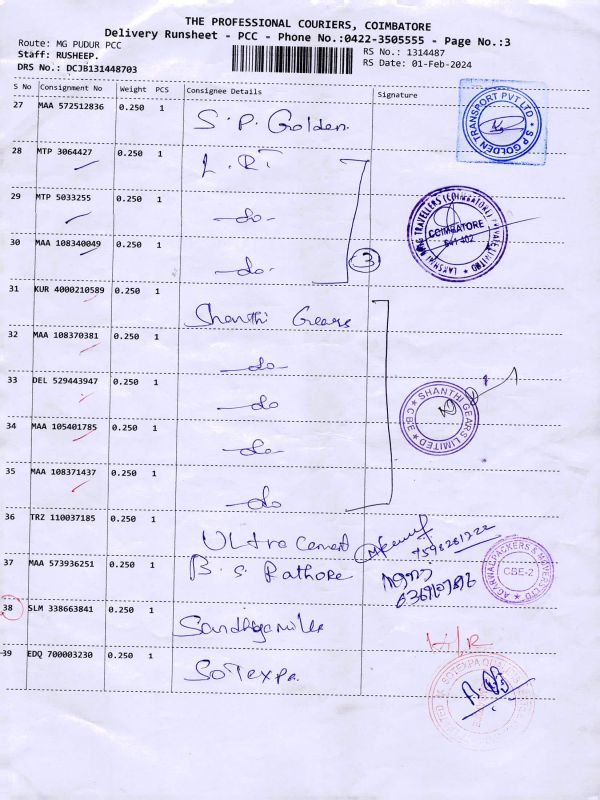 THE PROFESSIONAL COURIERS, COIMBATORE
Delivery Runsheet - PCC - Phone No.:0422-3505555 - Page No.:3
Route: MG PUDUR PCC
RS No.: 1314487
Staff: RUSHEEP.
RS Date: 01-Feb-2024
DRS No.: DCJB131448703
S No Consignment No Weight PCS Consignee Details Signature
27 MAA 572512836 0.250 1 S. P. Golden.
S P GOLDEN TRANSPORT PVT LTD
28 MTP 3064427 0.250 1 L. R. T
29 MTP 5033255 0.250 1 -do-
COIMBATORE
641 402
30 MAA 108340049 0.250 1 -do-
3
31 KUR 4000210589 0.250 1 Shanthi Gears
32 MAA 108370381 0.250 1 -do
33 DEL 529443947 0.250 1 -do
SHANTHI GEARS LIMITED ★ CBE ★
34 MAA 105401785 0.250 1 -do
35 MAA 108371437 0.250 1 -do
36 TRZ 110037185 0.250 1 Ultra Cement
37 MAA 573936251 0.250 1 B. S. Rathore
CBE-2
38 SLM 338663841 0.250 1
H/R
39 EDQ 700003230 0.250 1 SoTexpa.